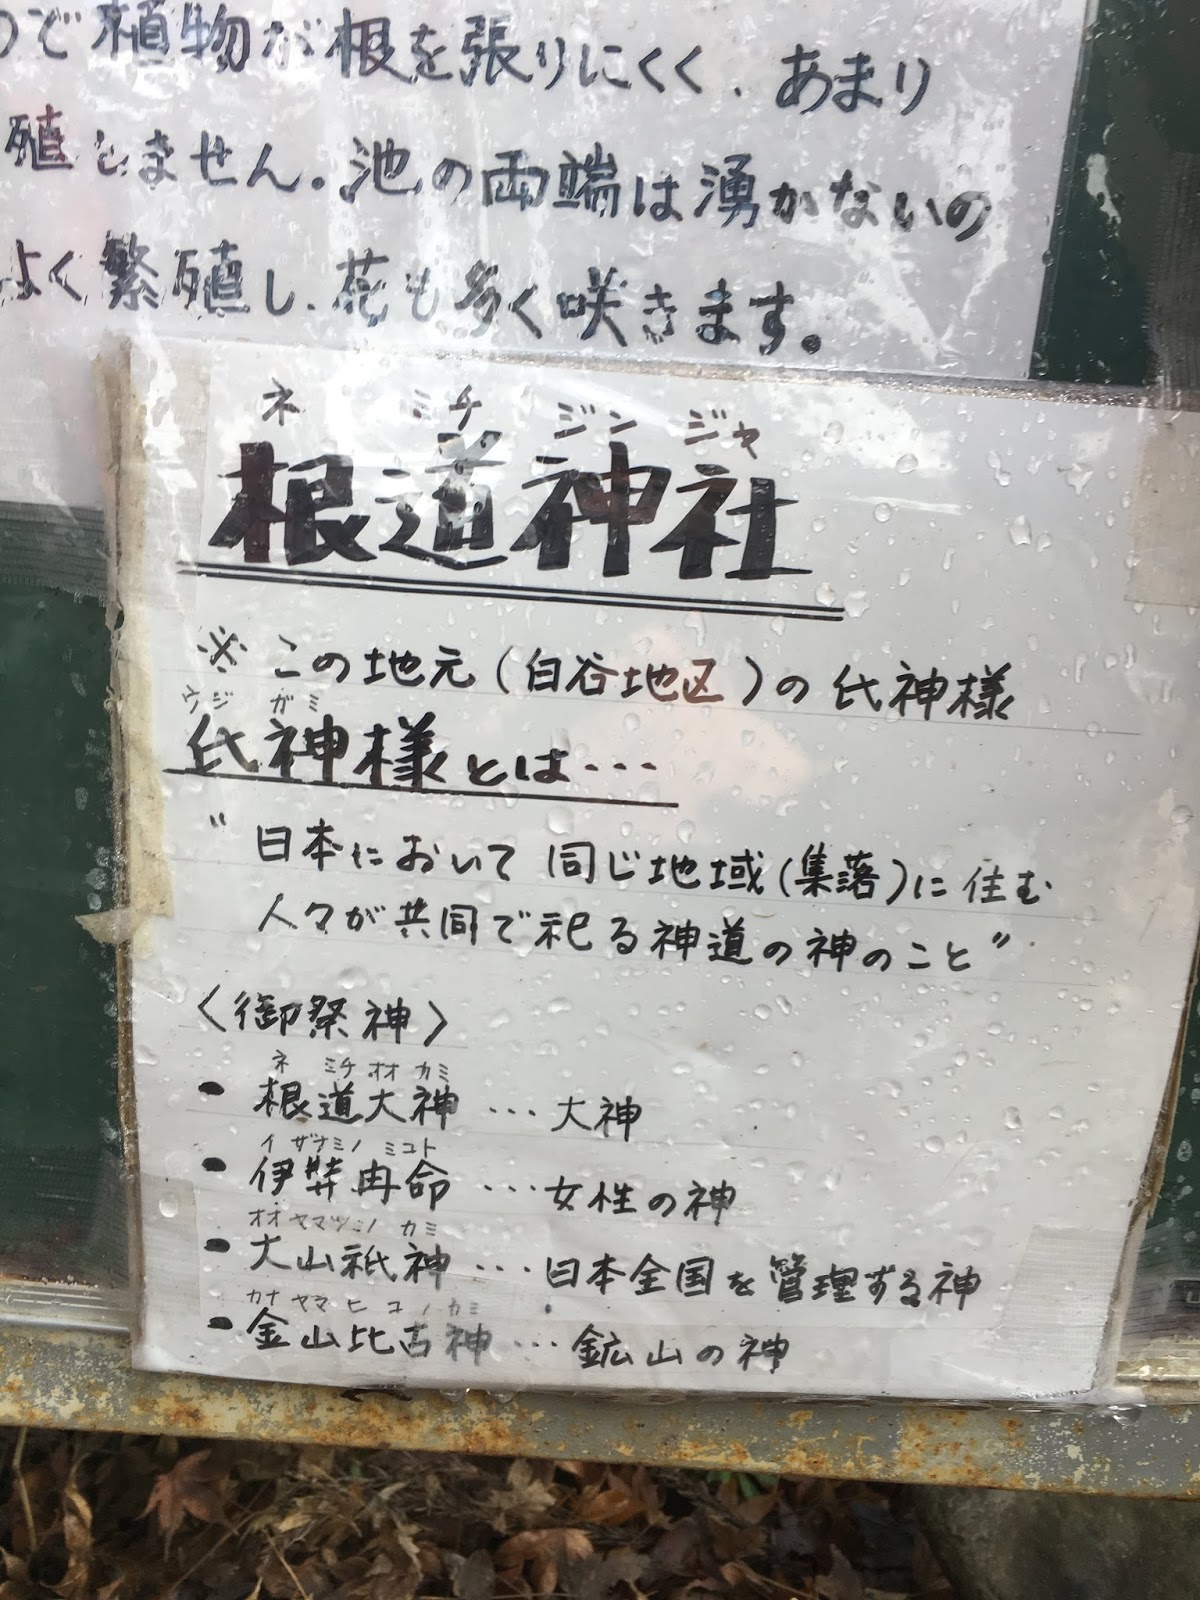 ので植物が根を張りにくく、あまり
殖しません。池の両端は湧かないの
よく繁殖し、花も多く咲きます。
ネ ミチ ジン ジャ
根道神社
※この地元(白谷地区)の氏神様
ウジ ガミ
氏神様とは・・・
"日本において同じ地域(集落)に住む
人々が共同で祀る神道の神のこと"
〈御祭神〉
ネ ミチ オオ カミ
・根道大神 ・・・大神
イ ザナミノ ミコト
・伊弉冉命 ・・・女性の神
オオヤマツミノ カミ
・大山祇神 ・・・日本全国を管理する神
カナ ヤマ ヒ コ ノ カミ
・金山比古神 ・・・鉱山の神